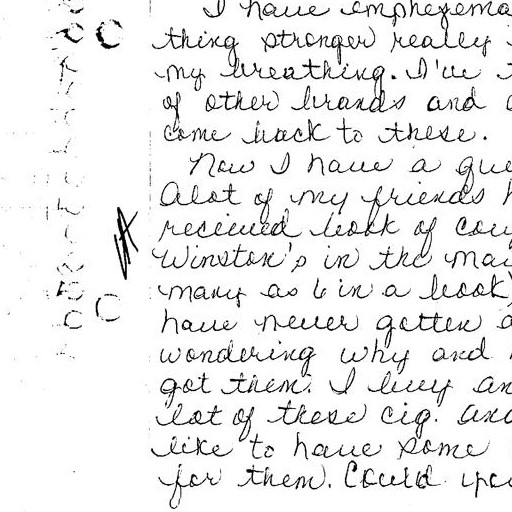 I have emphezema
thing stronger really
my breathing. I've
of other brands and
come back to these.
Now I have a que
Alot of my friends h
received book of cou
Winston's in the mai
many as 6 in a book)
have never gotten a
wondering why and
got them. I buy an
lot of these cig. and
like to have some
for them. Could you